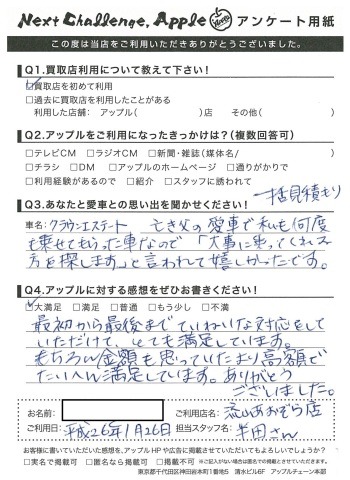 Next Challenge, Apple アンケート用紙
この度は当店をご利用いただきありがとうございました。
Q1.買取店利用について教えて下さい！
☑買取店を初めて利用
□過去に買取店を利用したことがある
利用した店舗： アップル( )店 その他( )
Q2.アップルをご利用になったきっかけは？(複数回答可)
□テレビCM □ラジオCM □新聞・雑誌(媒体名/ )
□チラシ □DM □アップルのホームページ □通りがかりで
□利用経験があるので □紹介 □スタッフに誘われて
一括見積もり
Q3.あなたと愛車との思い出を聞かせください！
車名：クラウンエステート 亡き父の愛車で私も何度
も乗せてもらった車なので「大事に乗ってくれる
方を探します」と言われて嬉しかったです。
Q4.アップルに対する感想をぜひお書きください！
☑大満足 □満足 □普通 □もう少し □不満
最初から最後までていねいな対応をして
いただけて、とても満足しています。
もちろん金額も思っていたより高額で
たいへん満足しています。ありがとう
ございました。
お名前： ご利用店名： 流山おおぞら店
ご利用日： 平成26年1月26日 担当スタッフ名： 半田さん
お客様に書いていただいた感想を、アップルHPや広告に掲載させていただいてもよろしいでしょうか？
□実名で掲載可 □匿名なら掲載可 □掲載不可 ※ご記入がない場合は匿名での掲載とさせていただきます。
東京都千代田区神田錦町1番地5 清水ビル6F アップルチェーン本部